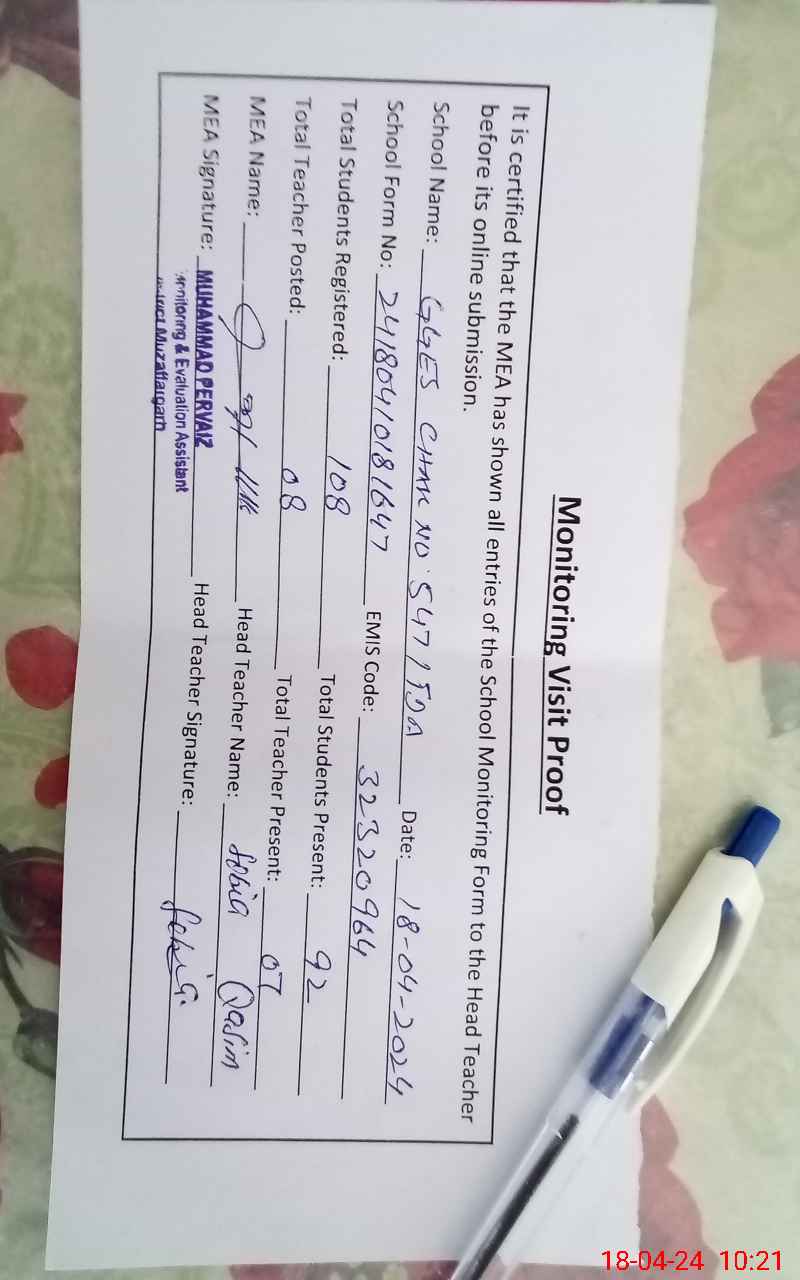 Monitoring Visit Proof
It is certified that the MEA has shown all entries of the School Monitoring Form to the Head Teacher
before its online submission.
School Name: GGES CHAK NO. 547/TDA Date: 18-04-2024
School Form No: 24180410181647 EMIS Code: 32320964
Total Students Registered: 108 Total Students Present: 92
Total Teacher Posted: 08 Total Teacher Present: 07
MEA Name: Head Teacher Name: Sobia Qasim
MEA Signature: MUHAMMAD PERVAIZ Head Teacher Signature: Sobia
Monitoring & Evaluation Assistant
District Muzaffargarh
18-04-24 10:21